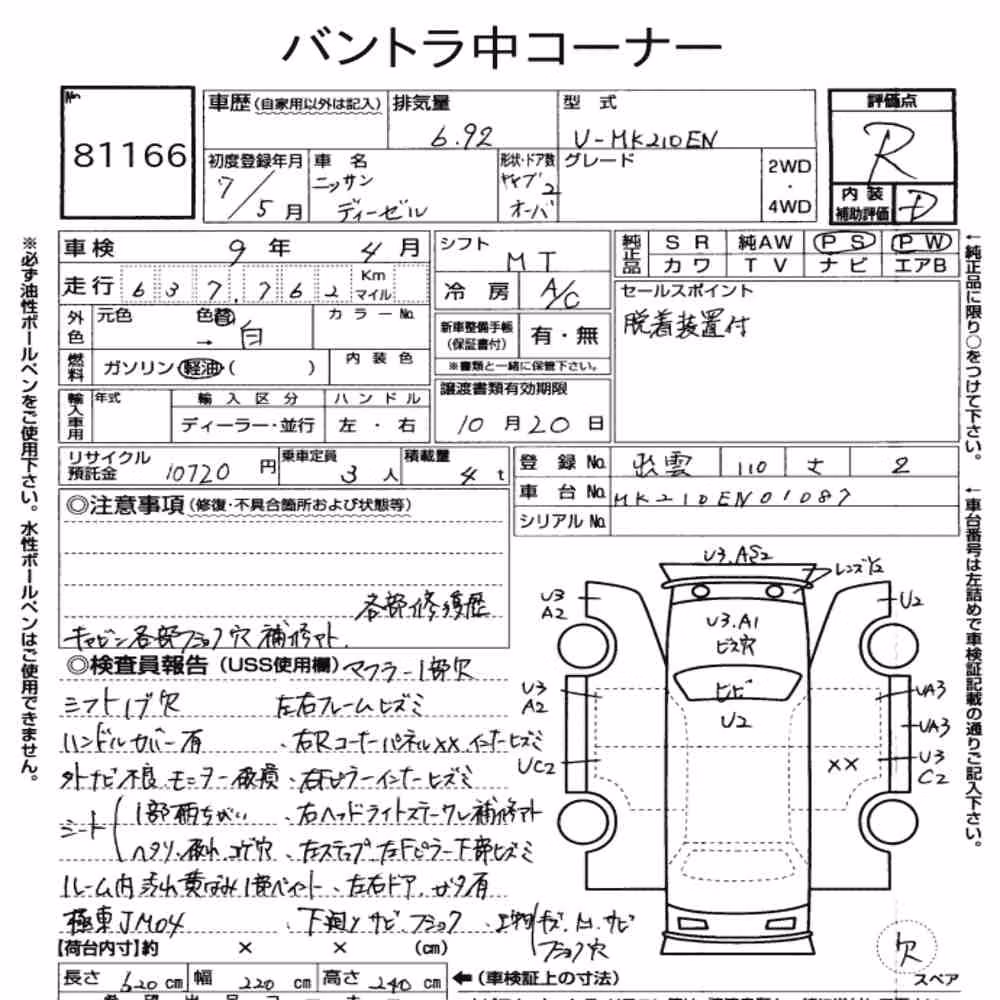 バントラ中コーナー
No. 81166
車歴（自家用以外は記入）
排気量 6.92
型 式 U-MK210EN
評価点 R
初度登録年月 7/5月
車 名 ニッサン ディーゼル
形状・ドア数 2
グレード
2WD・4WD
内装補助評価 D
車検 9年 4月
シフト MT
純正品 SR 純AW PS PW
カワ TV ナビ エアB
走行 637,762 Km マイル
冷房 A/C
セールスポイント
脱着装置付
外色 元色 色替 → 白 カラーNo.
新車整備手帳（保証書付） 有・無
※書類と一緒に保管下さい。
燃料 ガソリン 軽油 （ ） 内装色
譲渡書類有効期限
10月20日
輸入車用 年式 輸入区分 ハンドル
ディーラー・並行 左・右
リサイクル預託金 10720円
乗車定員 3人
積載量 4t
登録No. 出雲 110 さ 2
車台No. MK210EN01087
シリアルNo.
◎注意事項（修復・不具合箇所および状態等）
各部修復歴
キャビン各部フラック穴補修アト.
◎検査員報告（USS使用欄） マフラー1部欠
シフト1ブ欠 左右フレームヒズミ
ハンドルカバー有 . 右Rコーナーパネルxx インナーヒズミ
外ナビ不良. モニター破損 . 右Fピラーインナーヒズミ
シート 1部柄ちがい . 右ヘッドライトステー 補修アト
ヘタリ. コゲ穴 . 左ステップ. 左Fピラー下部ヒズミ
1ルーム内 汚れ 黄ばみ 1部ペイント . 左右ドア. ガタ有
極東JM04 下廻り サビ. フラック . 上物 キズ. M. サビ
フラック穴
【荷台内寸】約 × × （cm）
長さ 620cm 幅 220cm 高さ 240cm
←（車検証上の寸法）
U3.AS2
レンズY2
U3 A2
U2
U3.A1
ビス穴
ヒビ
U2
U3 A2
UA3
UA3
UC2
xx
U3 C2
欠
スペア
※必ず油性ボールペンをご使用下さい。水性ボールペンはご使用できません。
←純正品に限り○をつけて下さい。
←車台番号は左詰めで車検証記載の通りご記入下さい。